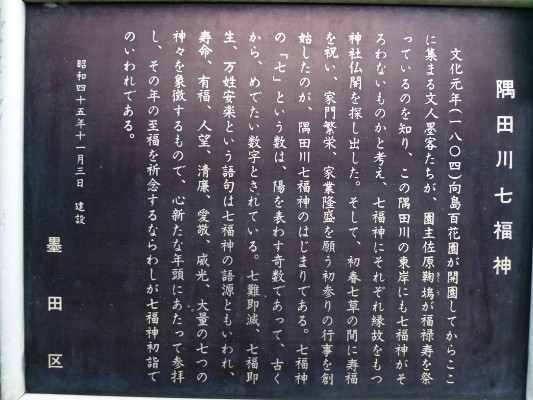 隅田川七福神
文化元年(一八〇四)向島百花園が開園してからここ
に集まる文人墨客たちが、園主佐原鞠塢が福禄寿を祭
っているのを知り、この隅田川の東岸にも七福神がそ
ろわないものかと考え、七福神にそれぞれ縁故をもつ
神社仏閣を探し出した。そして、初春七草の間に寿福
を祝い、家門繁栄、家業隆盛を願う初参りの行事を創
始したのが、隅田川七福神のはじまりである。七福神
の「七」という数は、陽を表わす奇数であって、古く
から、めでたい数字とされている。七難即滅、七福即
生、万姓安楽という語句は七福神の語源ともいわれ、
寿命、有福、人望、清廉、愛敬、威光、大量の七つの
神々を象徴するもので、心新たな年頭にあたって参拝
し、その年の至福を祈念するならわしが七福神初詣で
のいわれである。
昭和四十五年十一月三日 建設
墨田区